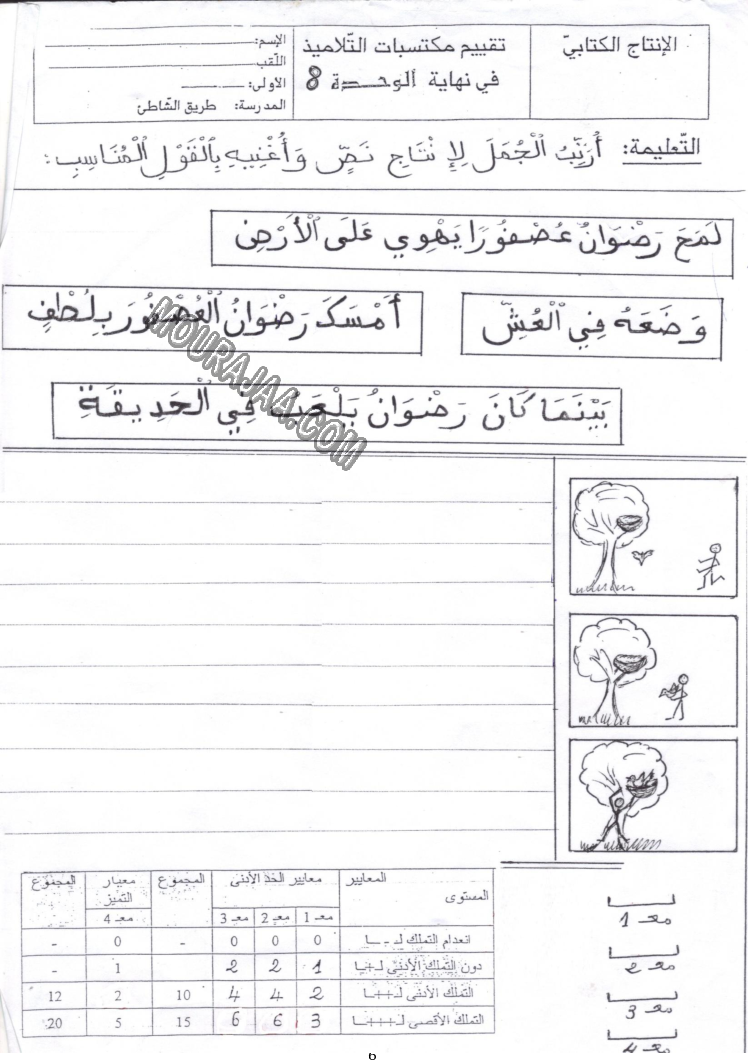 الإنتاج الكتابيّ
تقييم مكتسبات التّلاميذ
في نهاية الوحدة 8
الإسم:
اللّقب
الأولى:
المدرسة: طريق الشّاطئ
التّعليمة: أُرَتِّبُ الْجُمَلَ لِإِنْتَاجِ نَصٍّ وَأُغْنِيهِ بِالْقَوْلِ الْمُنَاسِبِ:
لَمَحَ رَضْوَانُ عُصْفُورًا يَهْوِي عَلَى الْأَرْضِ
وَضَعَهُ فِي الْعُشِّ
أَمْسَكَ رَضْوَانُ الْعُصْفُورَ بِلُطْفٍ
بَيْنَمَا كَانَ رَضْوَانُ يَلْعَبُ فِي الْحَدِيقَةِ
MOURAJAA.COM
المعايير معايير الحد الأدنى المجموع معيار التميز المجموع
المستوى مع 1 مع 2 مع 3 مع 4
انعدام التملك لـ - - - 0 0 0 - 0 -
دون التملك الأدنى لـ 1 2 2 1 -
التملك الأدنى لـ 2 4 4 10 2 12
التملك الأقصى لـ +++ 3 6 6 15 5 20
مع 1
مع 2
مع 3
مع 4
6